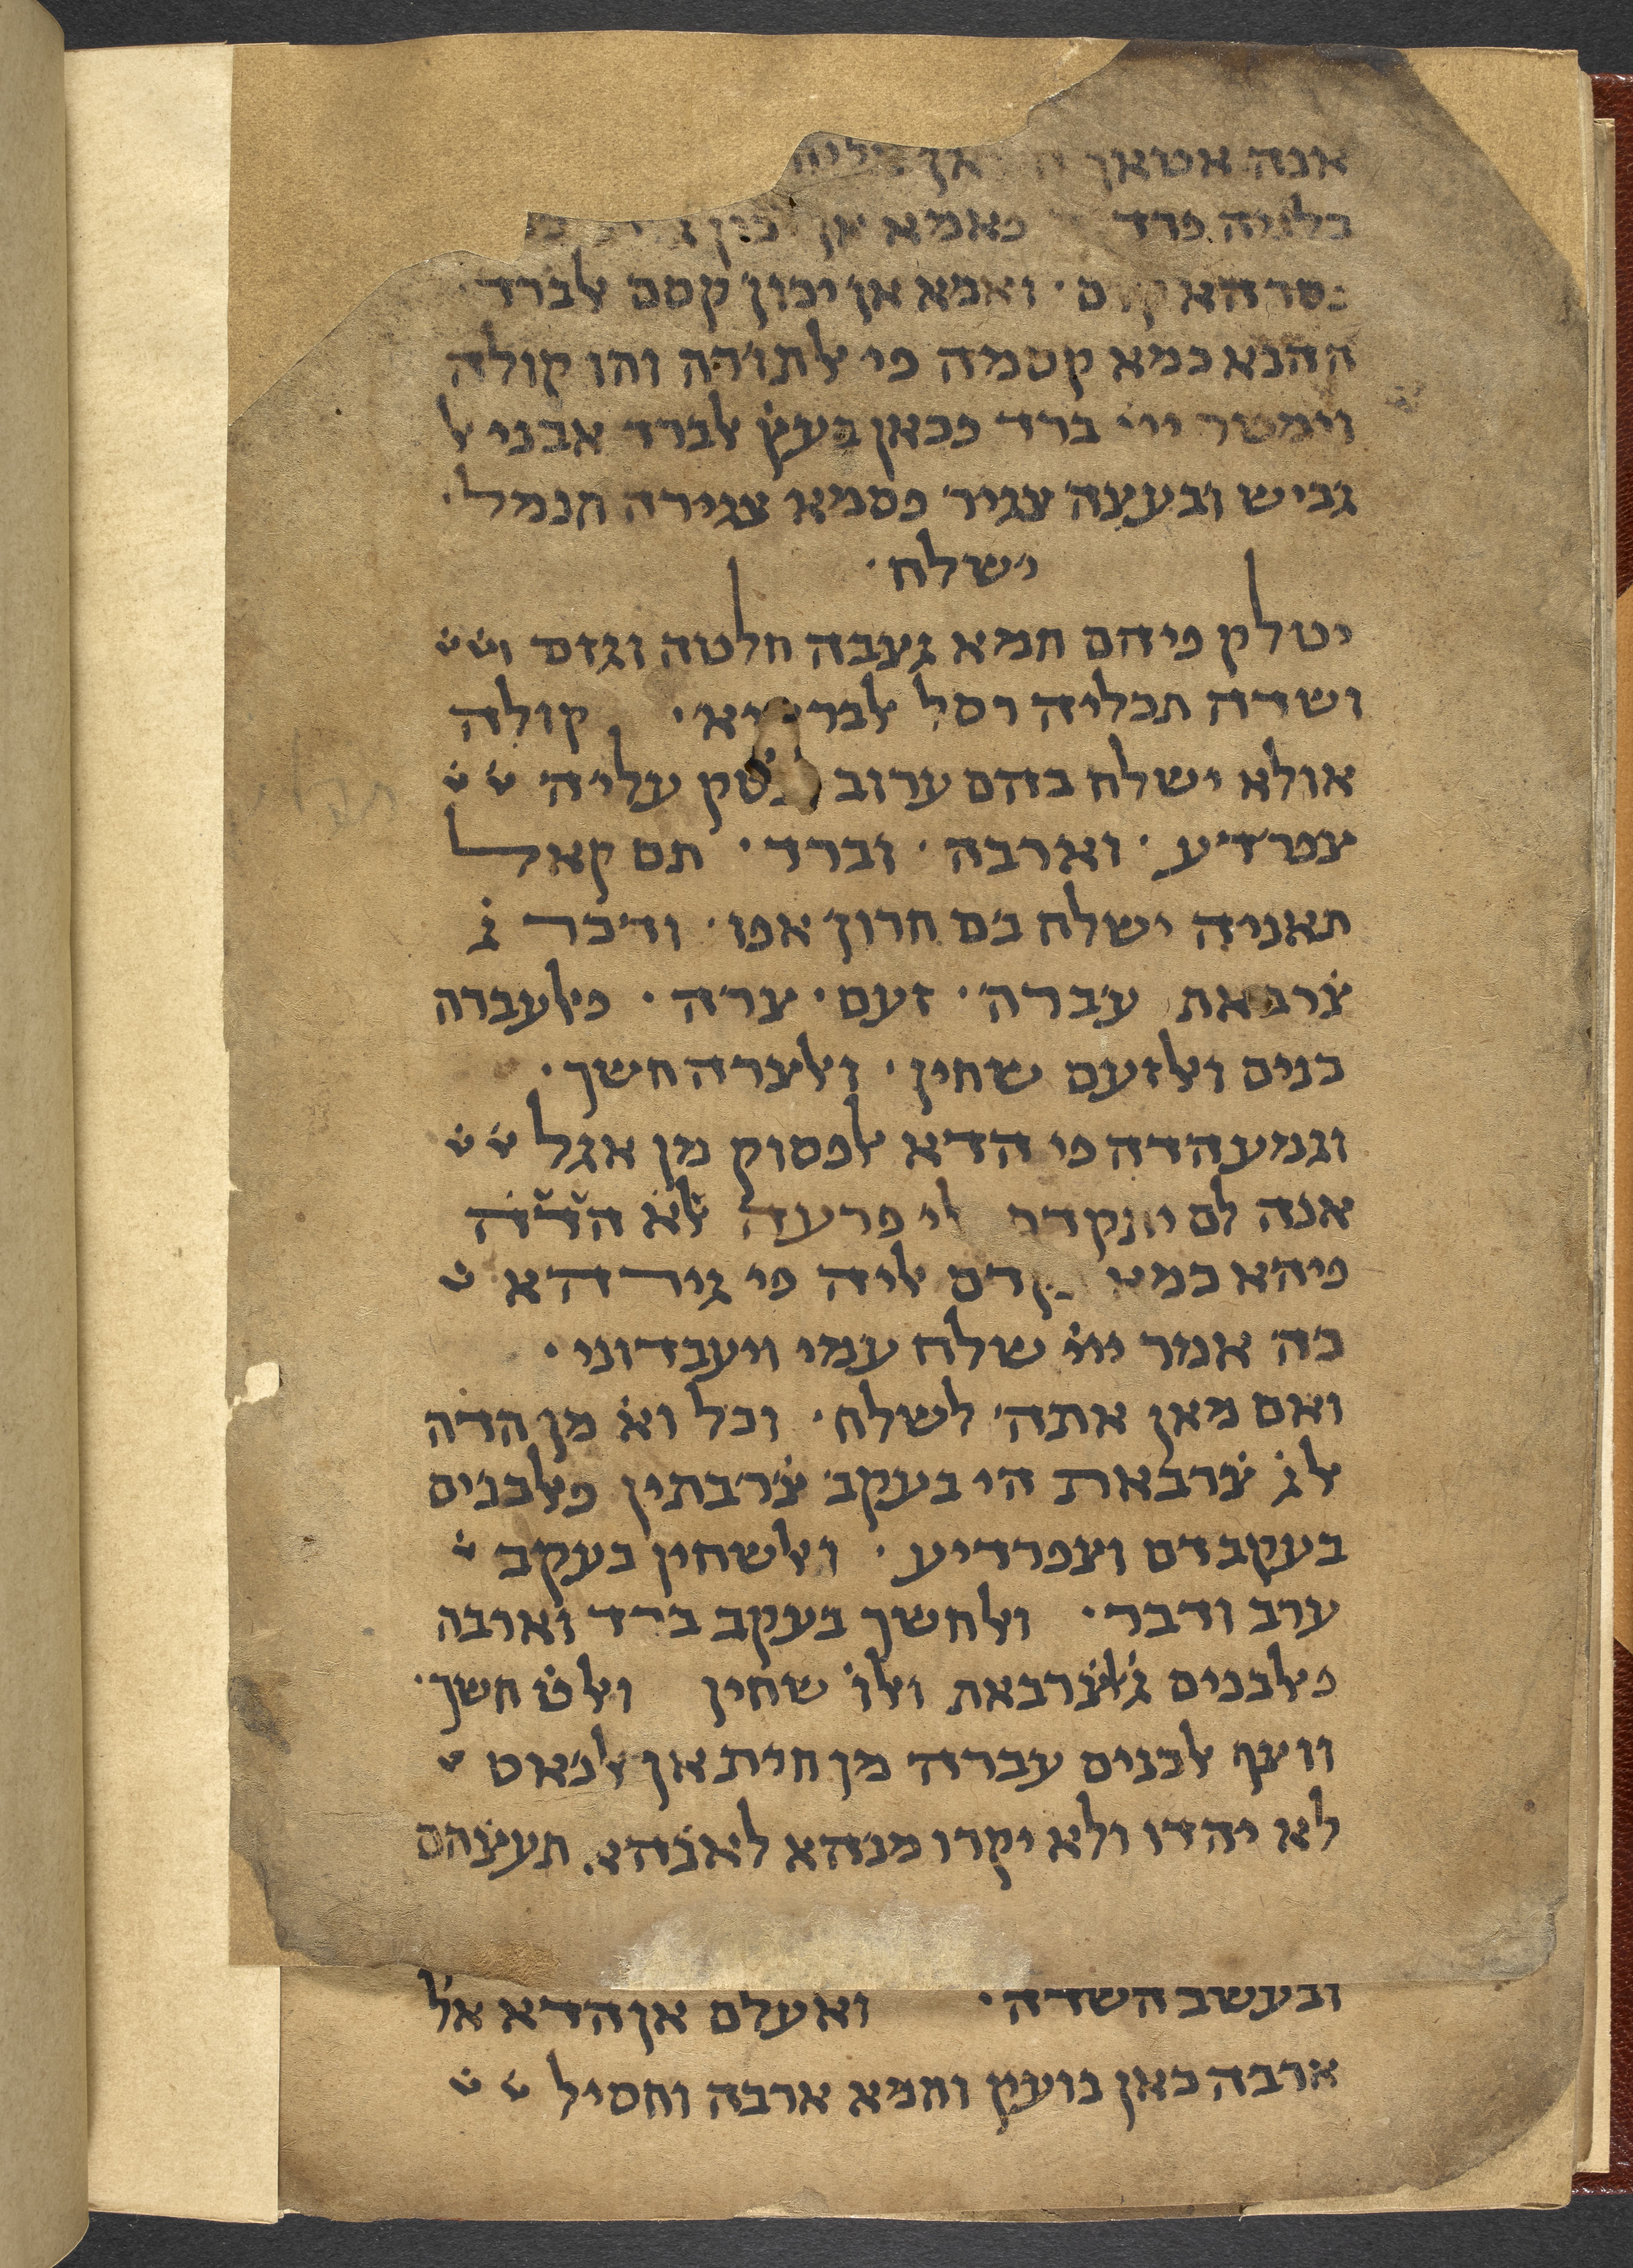 אנה אטאק
פרד פאמא אן
קסם ואמא אן יכון קסם אלברד
ההנא כמא קסמה פי אלתורה והו קולה
וימטר ייי ברד פכאן בעץ̇ אלברד אבני אל
גביש ובעצ̇ה צגיר פסמא צגירה חנמל׳
ישלח׳
יטלק פיהם חמא גצ̇בה חלטה וגזם
ושדה תכליה רסל קולה
אולא ישלח בהם ערוב עליה
צפרדע ׳ וארבה ׳ וברד ׳ תם קאל
תאניה ישלח בם חרון אפו ׳ ודכר ג̇
צ̇רבאת עברה ׳ זעם ׳ צרה ׳ פאלעברה
כנים ואלזעם שחין ׳ ואלצרה חשך ׳
וגמע הדה פי הדא אלפסוק מן אגל
אנה לם יתקדם פרעה
פיהא כמא אליה פי גירהא
כה אמר ייי שלח עמי ויעבדוני ׳
ואם מאן אתה לשלח ׳ וכל וא̇ מן הדה
אלג̇ צ̇רבאת הי בעקב צ̇רבתין פאלכנים
בעקב דם וצפרדיע ׳ ואלשחין בעקב
ערב ודבר ׳ ואלחשך בעקב ברד וארבה
פאלכנים ג̇ אלצ̇רבאת ואלו̇ שחין ואלט̇ חשך ׳
ווצף אלכנים עברה מן חית אן אלנאס
לא יהדו ולא יקרו מנהא לאנהא תעצ̇הם
ובעשב השדה ׳ ואעלם אן הדא אל
ארבה כאן נועין וחמא ארבה וחסיל